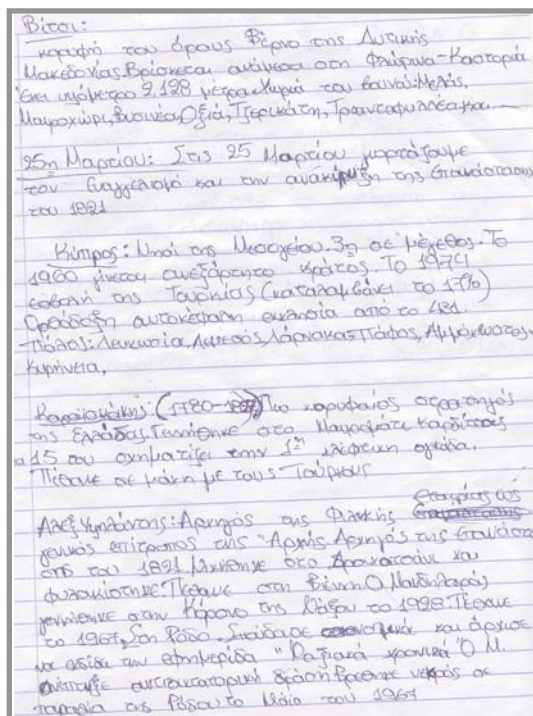 Βίτσι:
κορυφή του όρους Βέρνο της Δυτικής
Μακεδονίας. Βρίσκεται ανάμεσα στη Φλώρινα-Καστοριά
Έχει υψόμετρο 2.128 μέτρα. Χωριά του βουνού: Μελάς,
Μαυροχώρι, Βυσινέα, Οξιά, Τζερικάτη, Τριανταφυλλέα και
25η Μαρτίου: Στις 25 Μαρτίου γιορτάζουμε
τον Ευαγγελισμό και την ανακήρυξη της Επανάστασης
του 1821
Κύπρος: Νησί της Μεσογείου. 3η σε μέγεθος. Το
1960 γίνεται ανεξάρτητο κράτος. Το 1974
εσβολή της Τουρκίας (καταλαμβάνει το 17%)
Ορθόδοξη αυτοκέφαση εκκλησία από το 431.
Πόλεις: Λευκωσία, Λεμεσός, Λάρνακας, Πάφος, Αμμόχωστος,
Κυρήνεια,
Καραϊσκάκης: (1780-1827) Πιο κορυφαίος στρατηγός
της Ελλάδας. Γεννήθηκε στο Μαυρομάτι Καρδίτσας
15 του σχηματίζει την 1η κλέφτικη ομάδα.
Πέθανε σε μάχη με τους Τούρκους
Εταιρίας ως
Αλεξ. Υψηλάντης: Αρχηγός της Φιλικής
γενικός επίτροπος της "Αρχής. Αρχηγός της Επανάστα
σης του 1821. Νικήθηκε στο Δραγατσάνι και
φυλακίστηκε. Πέθανε στη Βιέννη. Ο Μανδηλαράς
γεννήθηκε στην Κόρωνο της Νάξου το 1928. Πέθανε
το 1967. Στη Ρόδο. Σπούδασε και άρχισε
να εκδίδει την εφημερίδα "Ναξιακά χρονικά" Ο Μ.
ανέπτυξε αντιδικτατορική δράση Βρέθηκε νεκρός σε
παραλία της Ρόδου το Μάιο του 1967